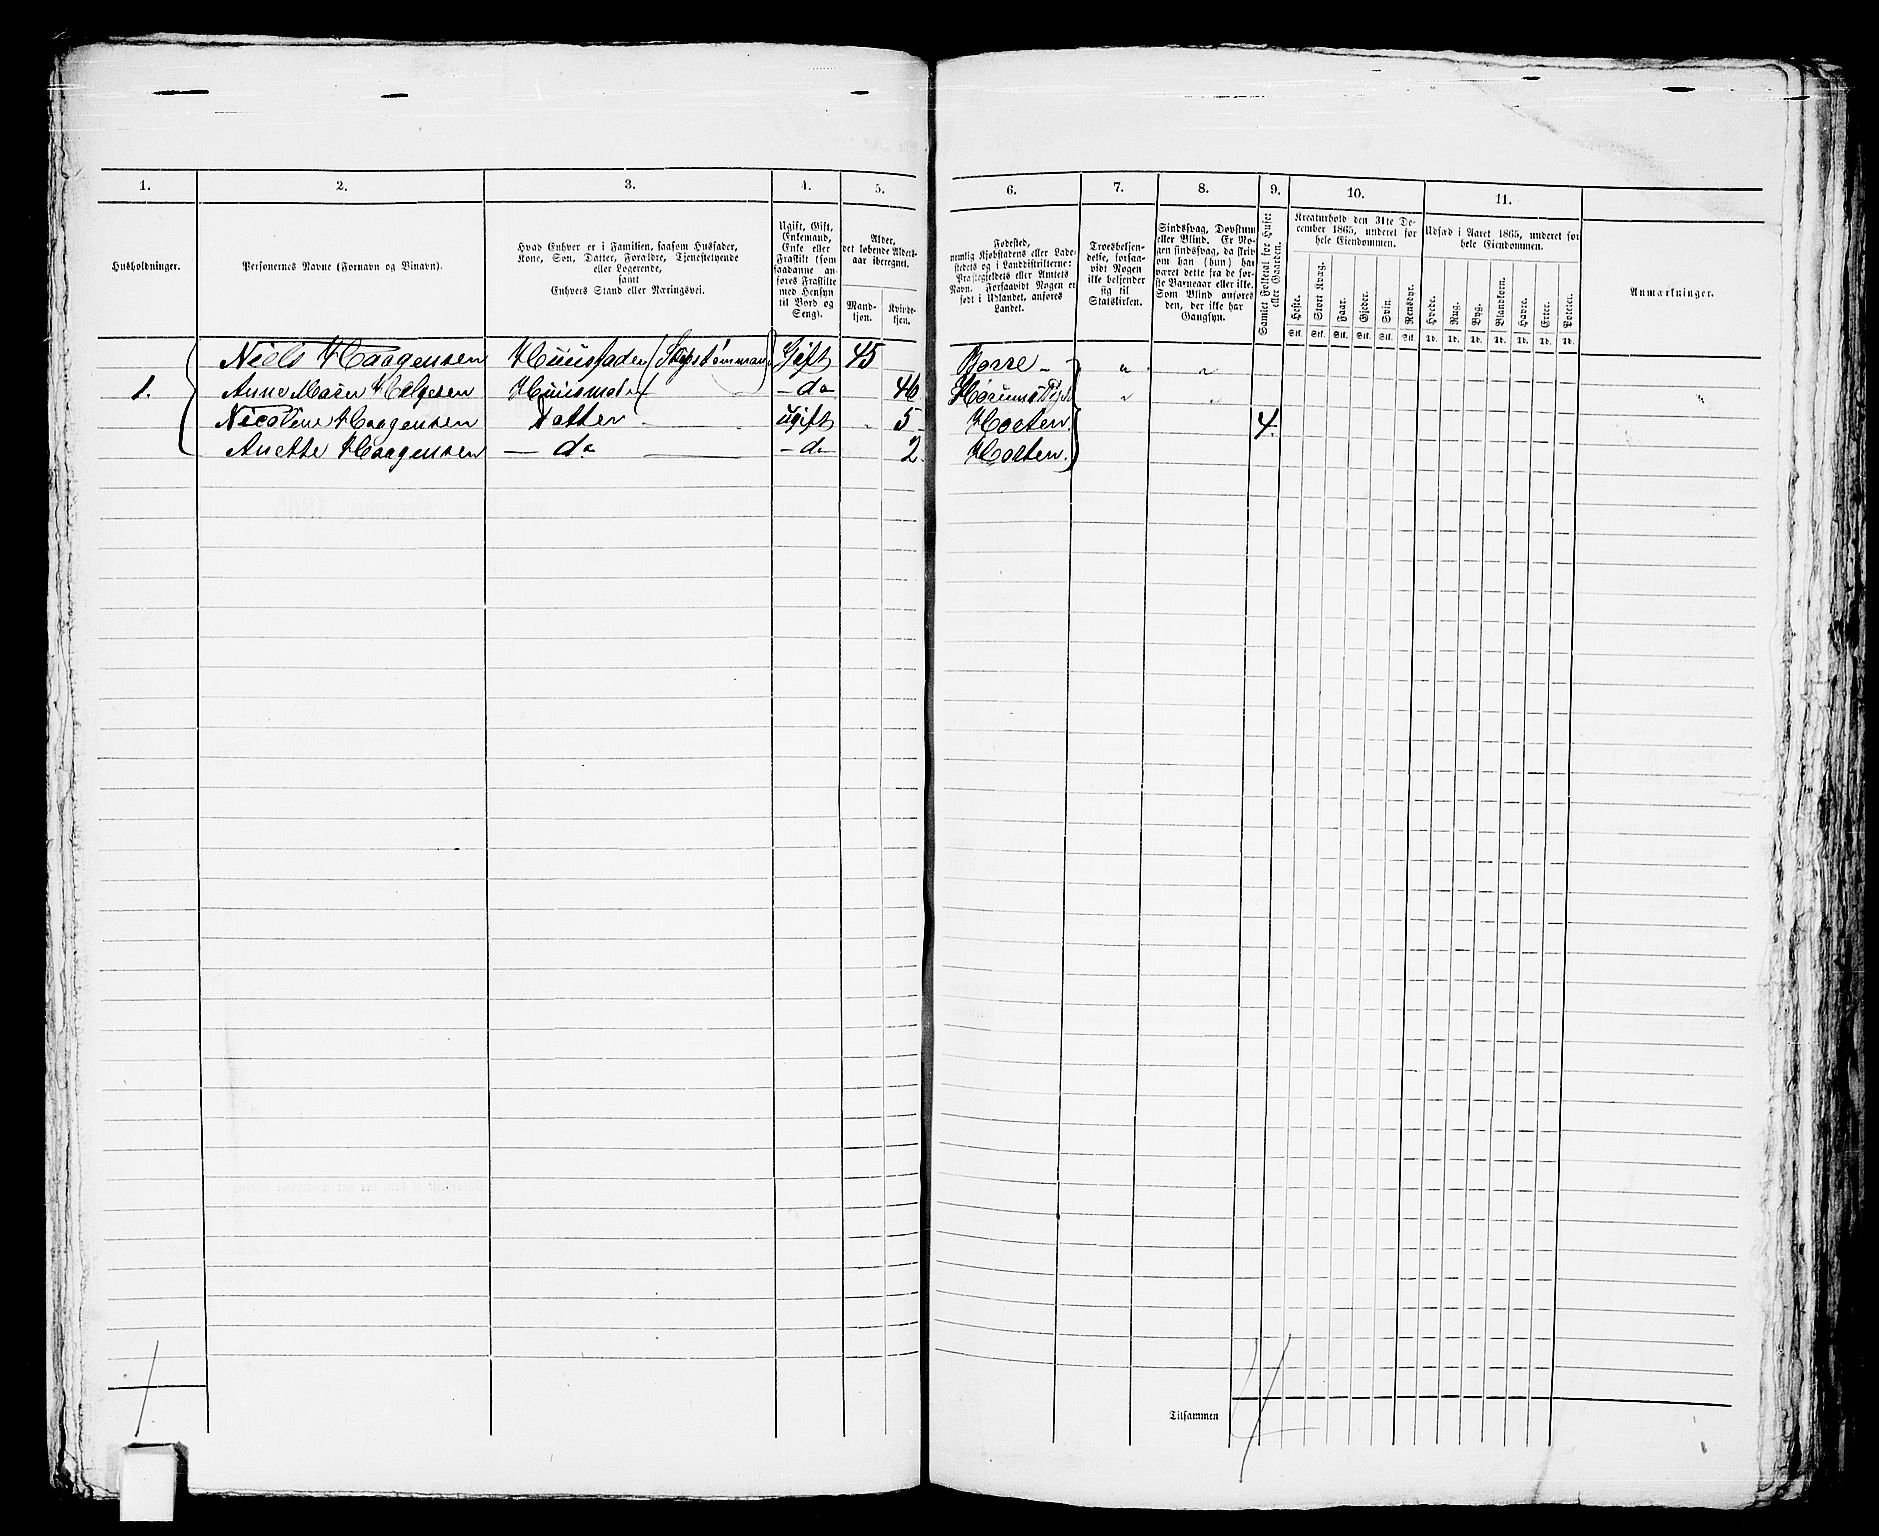 1. 2. 3. 4. 5. 6. 7. 8. 9. 10. 11.
Husholdninger.
Personernes Navne (Fornavn og Binavn).
Hvad Enhver er i Familien, saasom Husfader,
Kone, Søn, Datter, Forældre, Tjenestetyende
eller Logerende,
samt
Enhvers Stand eller Næringsvei.
Ugift, Gift,
Enkemand,
Enke eller
Fraskilt (som
saadanne an-
føres Fraskilte
med Hensyn
til Bord og
Seng).
Alder,
det løbende Alders-
aar iberegnet.
Mand-
kjøn.
Kvinde-
kjøn.
Fødested,
nemlig Kjøbstadens eller Lade-
stedets og i Landdistrikterne:
Præstegjeldets eller Amtets
Navn. Forsaavidt Nogen er
født i Udlandet, anføres
Landet.
Troesbekjen-
delse, forsaa-
vidt Nogen
ikke bekjender
sig til
Statskirken.
Sindssvag, Døvstum
eller Blind. Er No-
gen sindssvag, da skriv
om han (hun) har
været dette fra de før-
ste Barneaar eller ikke.
Som Blind anføres
den, der ikke har
Gangsyn.
Samlet Folketal for Huset
eller Gaarden.
Kreaturhold den 31te De-
cember 1865, underet for
hele Eiendommen.
Heste. Stort Kvæg. Faar. Gjeder. Svin. Rensdyr.
Stk. Stk. Stk. Stk. Stk. Stk.
Udsæd i Aaret 1865, underet for
hele Eiendommen.
Hvede. Rug. Byg. Blandkorn. Havre. Erter. Poteter.
Td. Td. Td. Td. Td. Td. Td.
Anmærkninger.
Niels Haagensen Huusfader Gift 45 Borre - " "
1. Anne Maria Helgesen Huusmoder - do 46 " " "
Nicoline Haagensen Datter - ugift - 5 - Horten. 4.
Anette Haagensen - do - - do 2. Horten.
1
Tilsammen 4